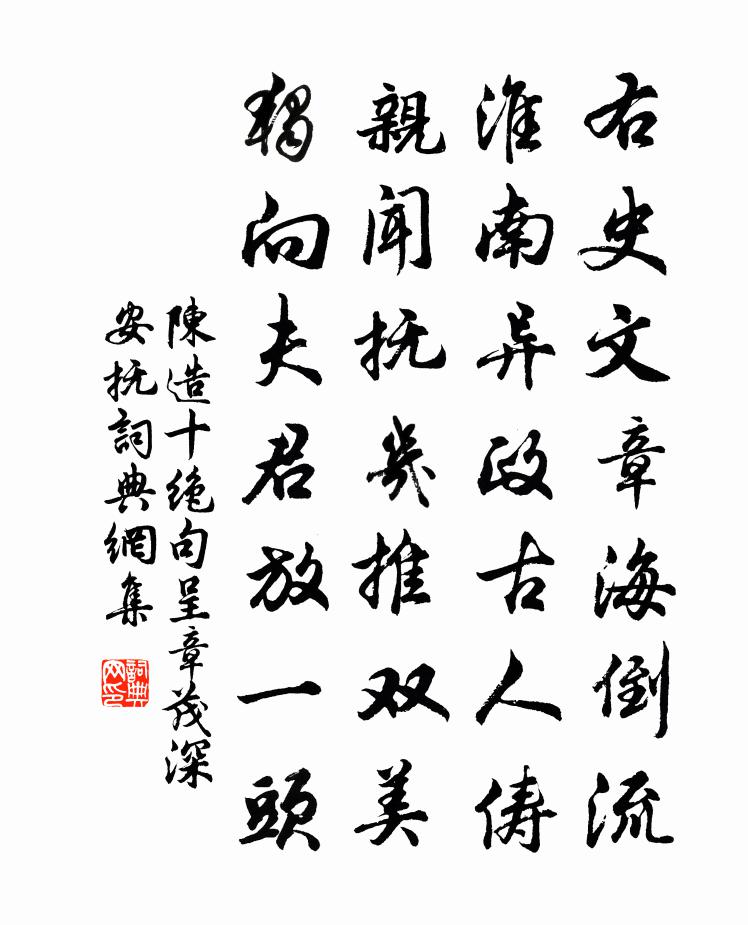 右史文章海倒流
淮南异政古人俦
親聞抚幾推双美
獨向夫君放一頭
陳造十絕句呈章茂深
安抚詞典網集
詞典网印